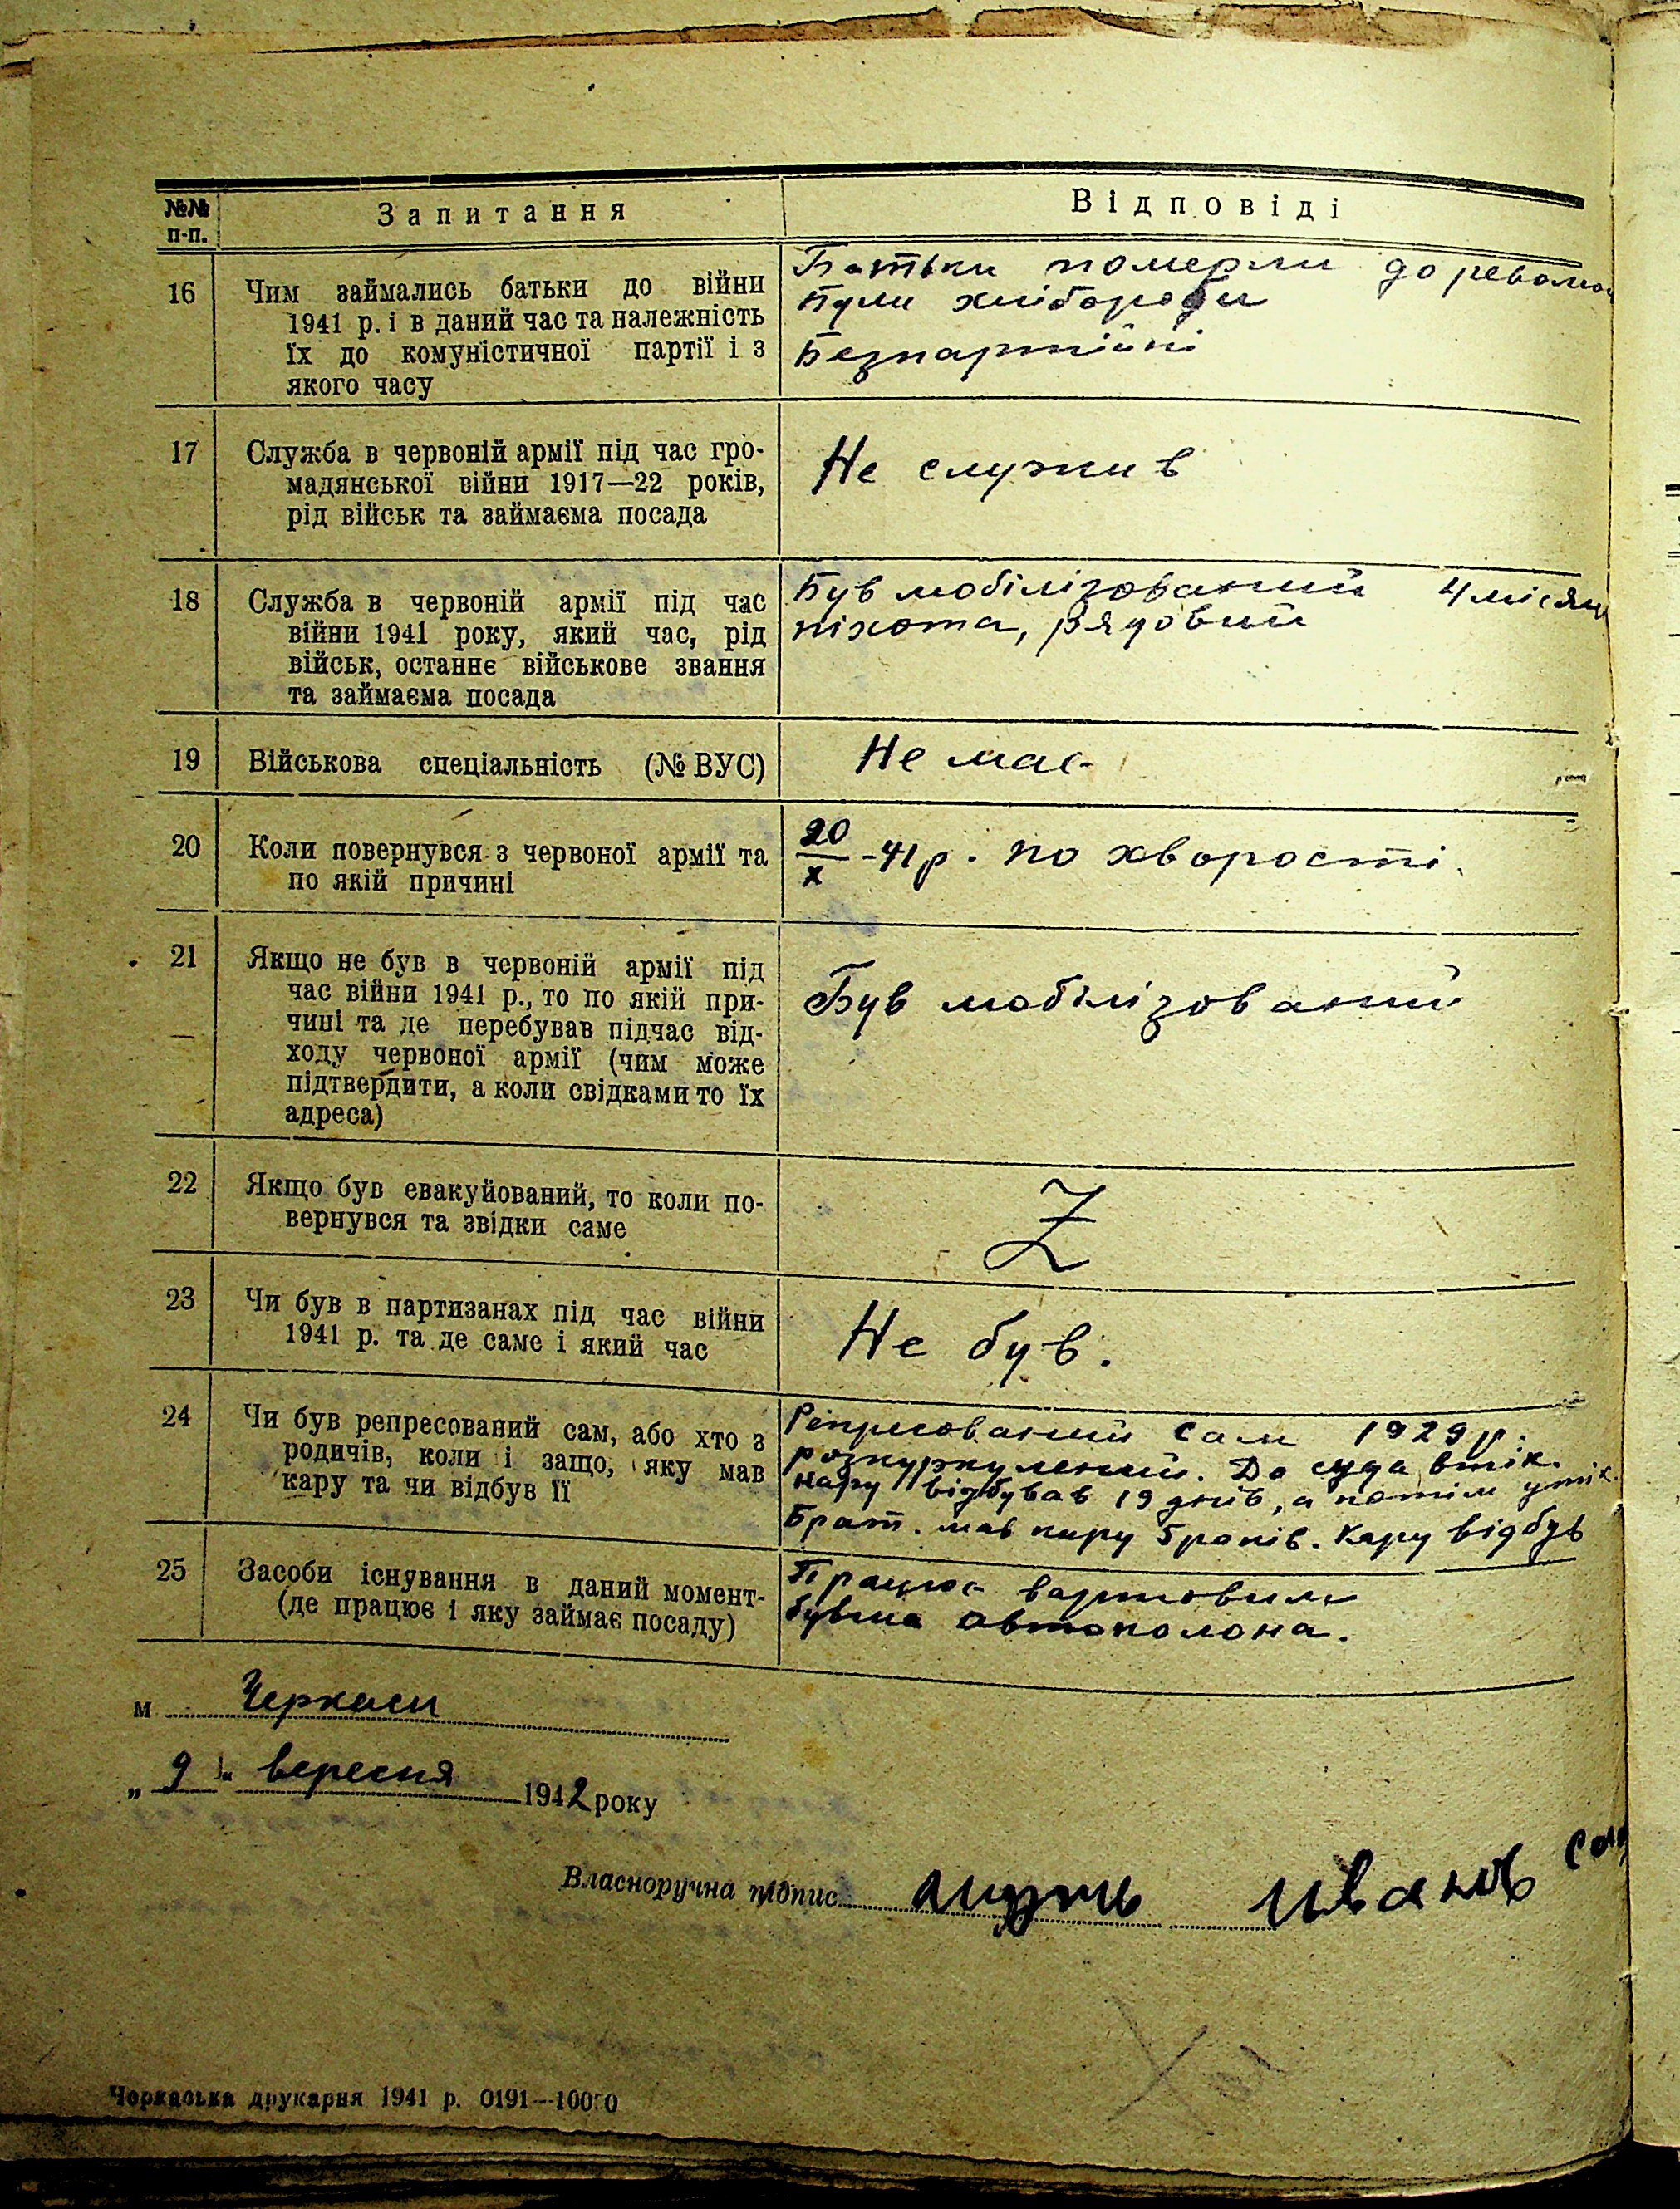 №№ п-п.
Запитання
Відповіді
16
Чим займались батьки до війни
1941 р. і в даний час та належність
їх до комуністичної партії і з
якого часу
Батьки померли до револю
Були хлібороби
Безпартійні
17
Служба в червоній армії під час гро-
мадянської війни 1917—22 років,
рід військ та займаєма посада
Не служив
18
Служба в червоній армії під час
війни 1941 року, який час, рід
військ, останнє військове звання
та займаєма посада
Був мобілізований 4 місяц
піхота, рядовий
19
Військова спеціальність (№ ВУС)
Не має
20
Коли повернувся з червоної армії та
по якій причині
20/х -41р. по хворості.
21
Якщо не був в червоній армії під
час війни 1941 р., то по якій при-
чині та де перебував підчас від-
ходу червоної армії (чим може
підтвердити, а коли свідками то їх
адреса)
Був мобілізований
22
Якщо був евакуйований, то коли по-
вернувся та звідки саме
Z
23
Чи був в партизанах під час війни
1941 р. та де саме і який час
Не був.
24
Чи був репресований сам, або хто з
родичів, коли і защо, яку мав
кару та чи відбув її
Репресований сам 1929 р.
розкуркулений. До суда втік.
кару відбував 19 днів, а потім утік.
Брат. мав кару 5 років. Кару відбув
25
Засоби існування в даний момент-
(де працює і яку займає посаду)
Працює вартовим
бувша автоколона.
м Черкаси
„ 9 “ вересня 1942 року
Власноручна підпис Иванов
Черкаська друкарня 1941 р. 0191—10000